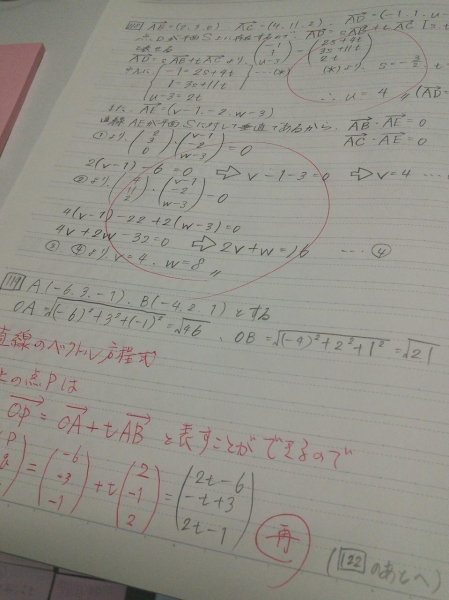 AB=(2,3,0) AC=(4,11,2) AD=(-1,1,u-
t AC
AD=sAB+tAC より、
-1=2s+4t ……(*)
1=3s+11t
u-3=2t
(*)より、s=-3/2 t
∴u=4 〃 (AD
また、AE=(v-1,-2,w-3)
直線AEが平面Sに対して垂直であるから、AB・AE=0
AC・AE=0
①より (2 3 0)・(v-1 -2 w-3)=0
2(v-1)-6=0 ⇒ v-1-3=0 ⇒ v=4 …
②より (4 11 2)・(v-1 -2 w-3)=0
4(v-1)-22+2(w-3)=0
4v+2w-32=0 ⇒ 2v+w=16 … ④
③、④より v=4、w=8 〃
119 A(-6,3,-1)、B(-4,2,1)とする
OA=√(-6)²+3²+(-1)²=√46、OB=√(-4)²+2²+1²=√21
直線のベクトル方程式
上の点Pは
OP=OA+tAB と表すことができるので
=(-6 -3 -1)+t(2 -1 2)=(2t-6 -t+3 2t-1) 再
(122のあとへ)